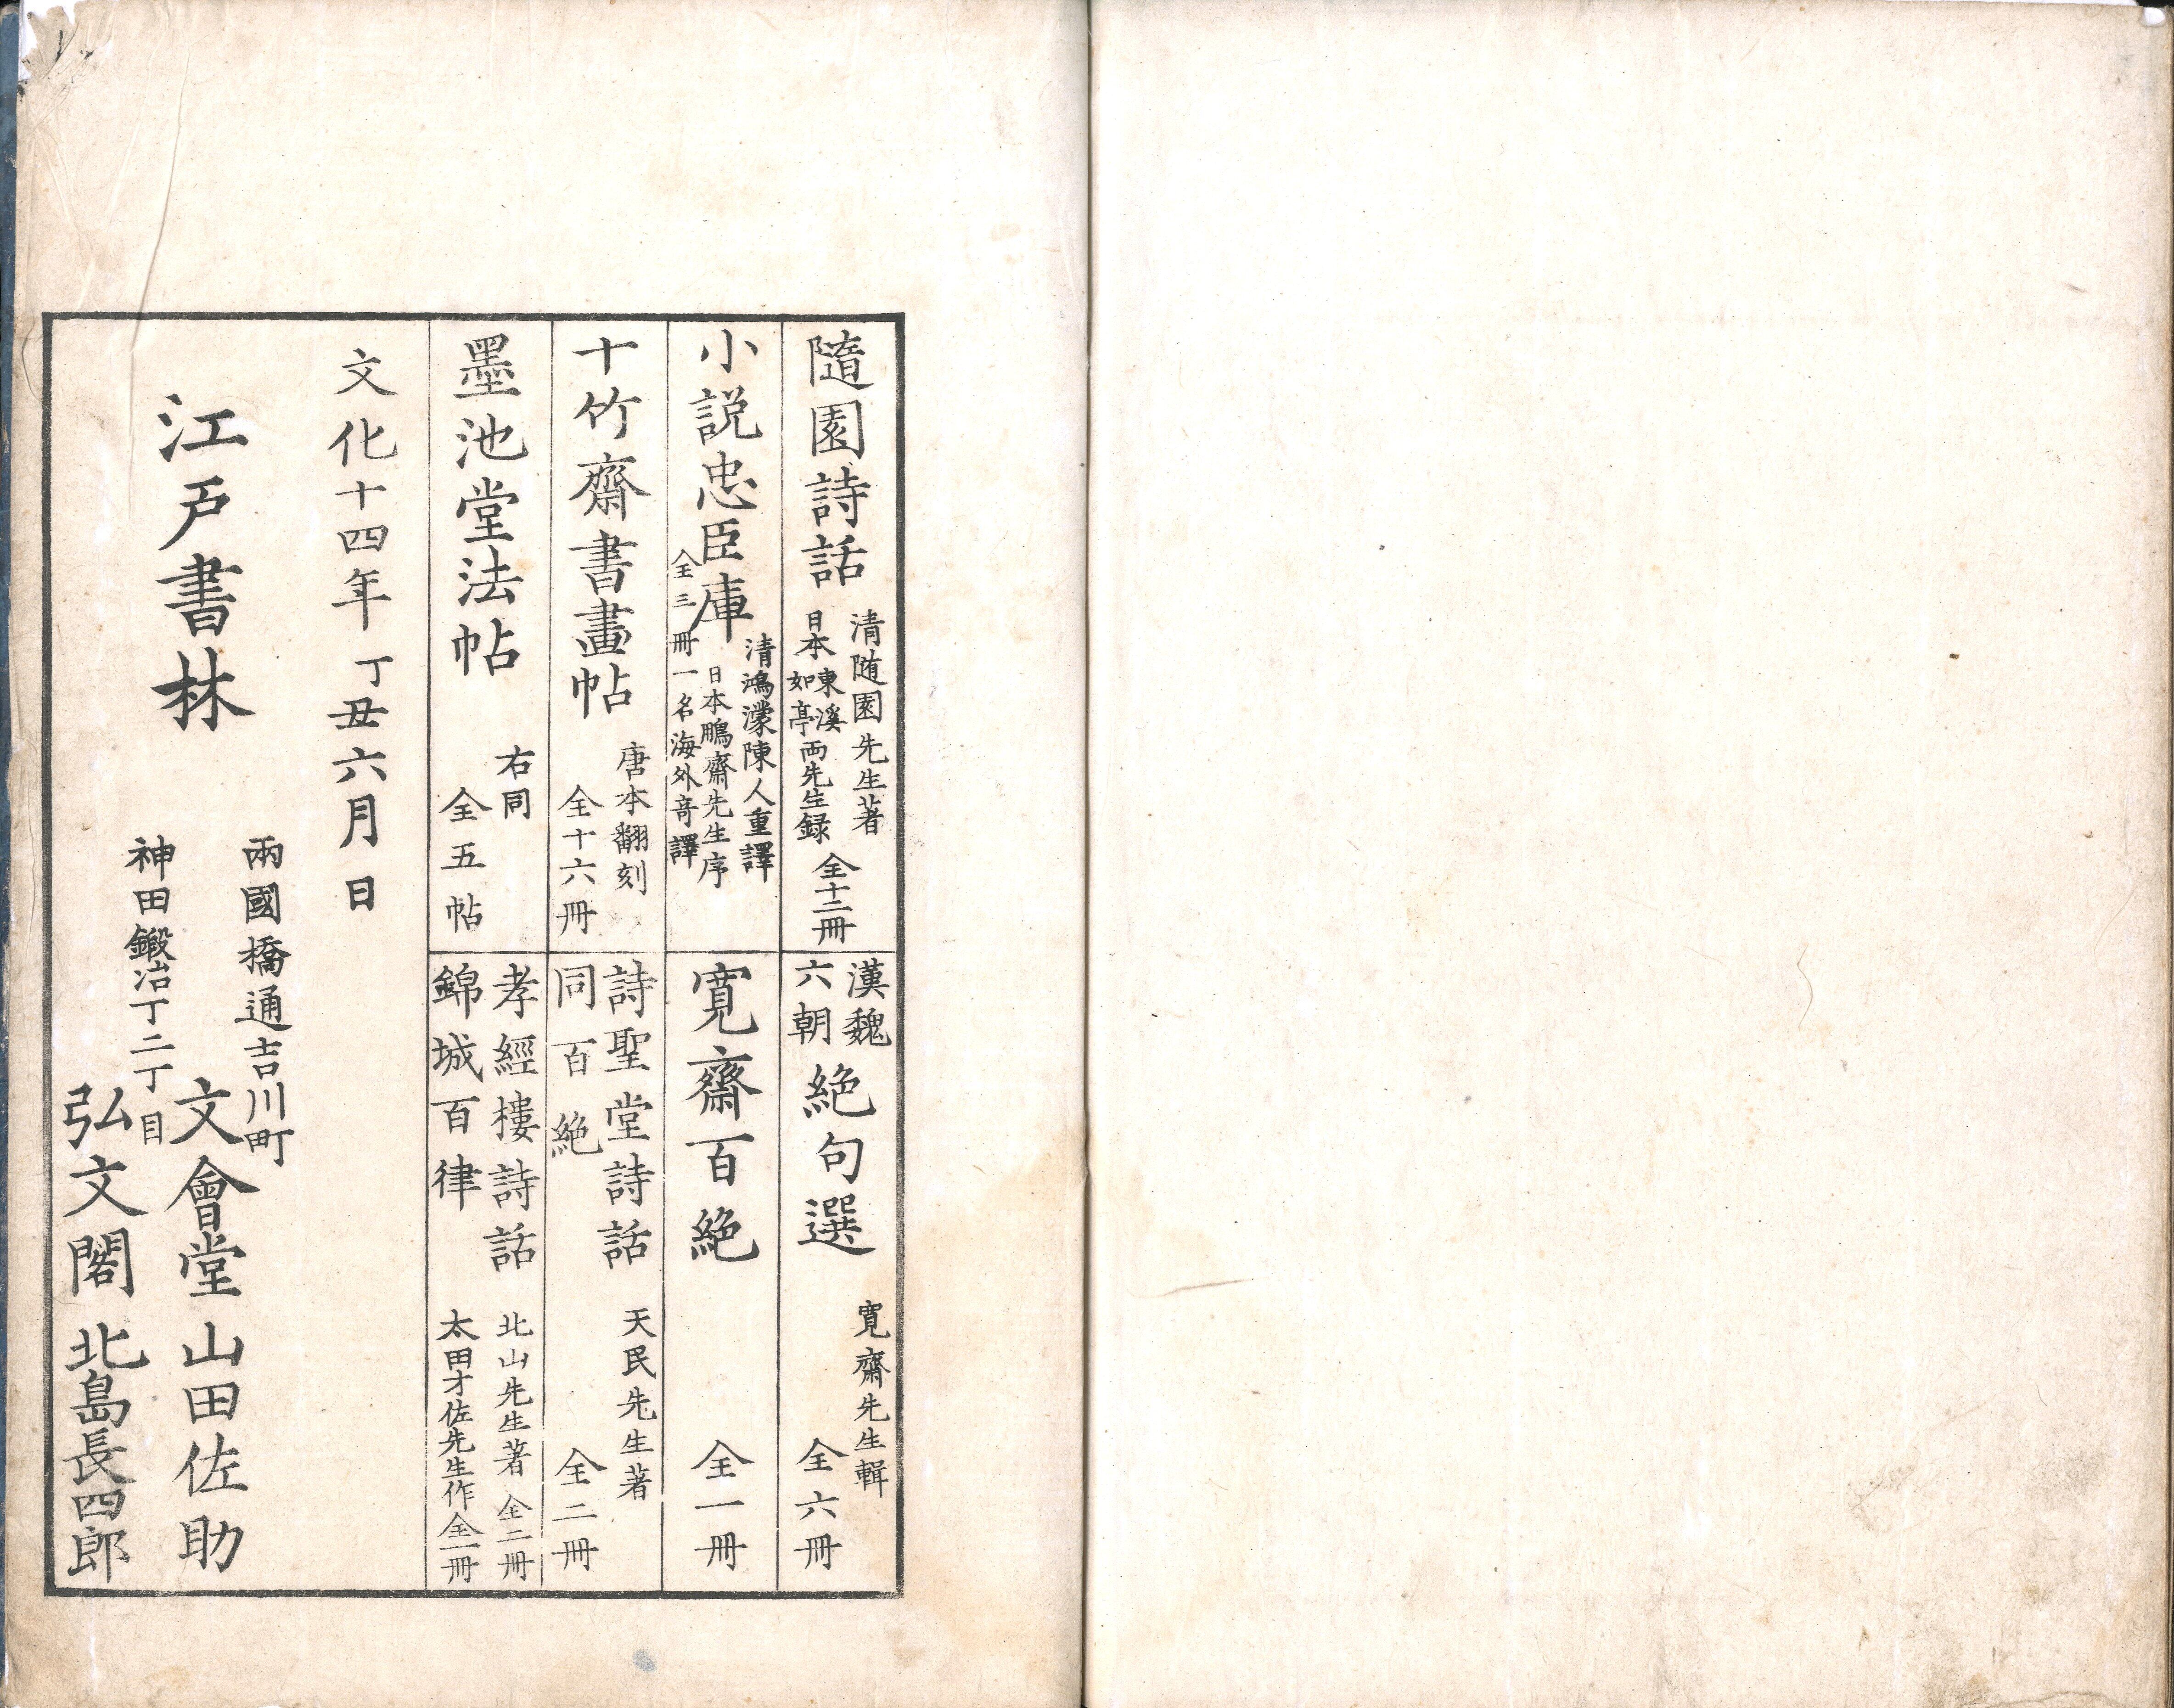 隨園詩話
清随園先生著
日本東溪如亭両先生録
全十二冊
漢魏六朝絶句選
寛齋先生輯
全六冊
小説忠臣庫
清鴻濛陳人重譯
日本鵬齋先生序
全三冊一名海外奇譯
寛齋百絶
全一冊
十竹齋書畫帖
唐本翻刻
全十六冊
詩聖堂詩話
同百絶
天民先生著
全二冊
墨池堂法帖
右同
全五帖
孝經樓詩話
北山先生著全二冊
錦城百律
太田才佐先生作全一冊
文化十四年丁丑六月日
江戸書林
兩國橋通吉川町
文會堂山田佐助
神田鍛冶丁二丁目
弘文閣北島長四郎